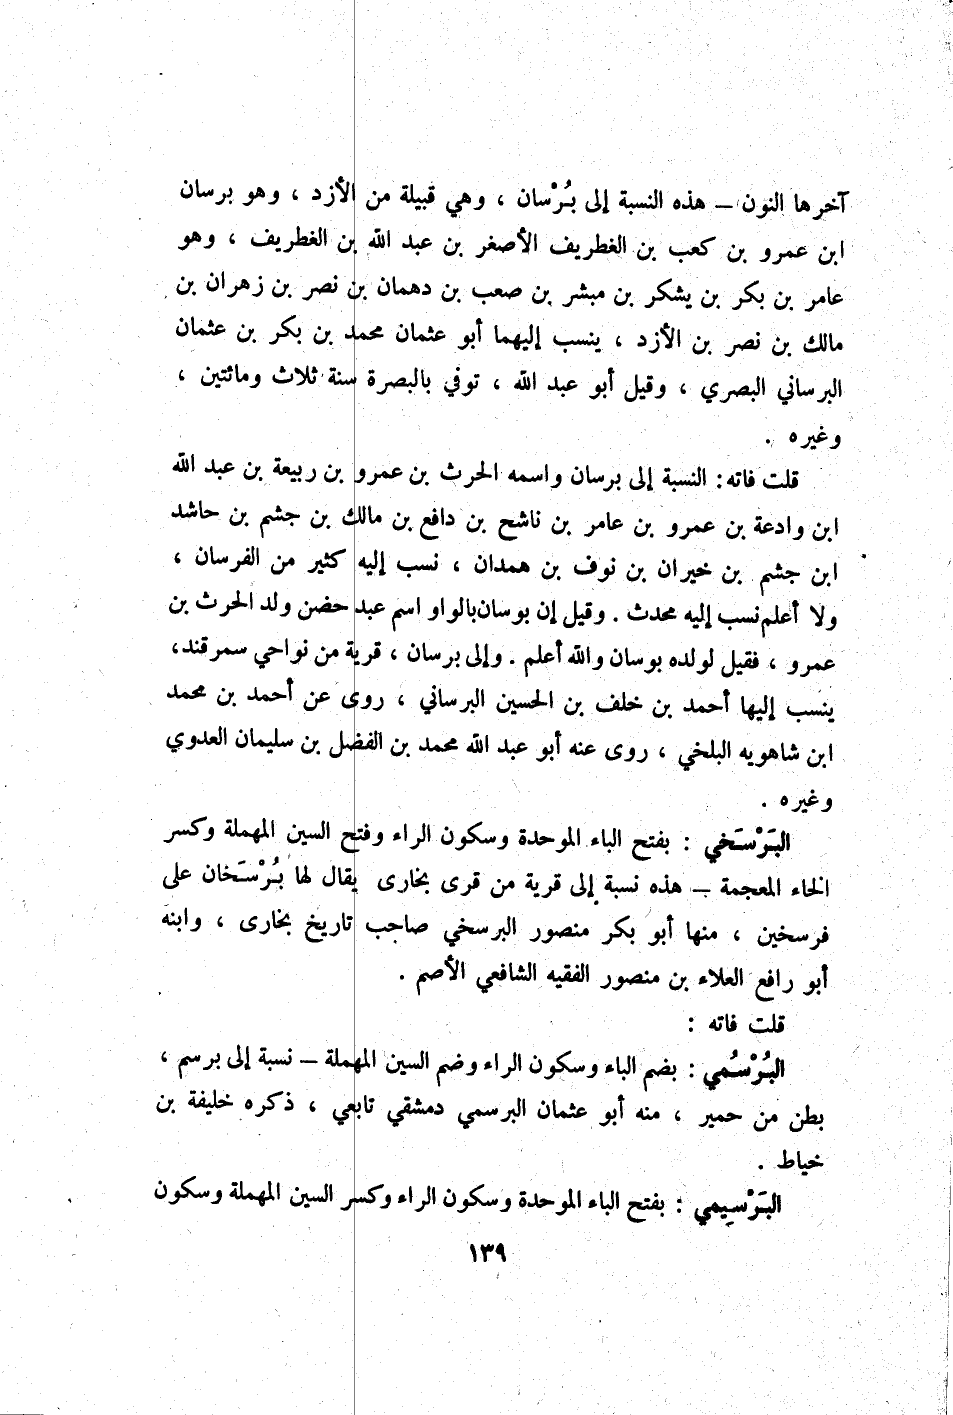 آخرها النون – هذه النسبة إلى بُرْسان ، وهي قبيلة من الأزد ، وهو برسان
ابن عمرو بن كعب بن الغطريف الأصغر بن عبد الله بن الغطريف ، وهو
عامر بن بكر بن يشكر بن مبشر بن صعب بن دهمان بن نصر بن زهران بن
مالك بن نصر بن الأزد ، ينسب إليهما أبو عثمان محمد بن بكر بن عثمان
البرساني البصري ، وقيل أبو عبد الله ، توفي بالبصرة سنة ثلاث ومائتين ،
وغيره .
قلت فاته : النسبة إلى برسان واسمه الحرث بن عمرو بن ربيعة بن عبد الله
ابن وادعة بن عمرو بن عامر بن ناشح بن دافع بن مالك بن جشم بن حاشد
ابن جشم بن خيران بن نوف بن همدان ، نسب إليه كثير من الفرسان ،
ولا أعلم نسب إليه محدث . وقيل إن بوسان بالواو اسم عبد حضن ولد الحرث بن
عمرو ، فقيل لولده بوسان والله أعلم . وإلى برسان ، قرية من نواحي سمرقند ،
ينسب إليها أحمد بن خلف بن الحسين البرساني ، روى عن أحمد بن محمد
ابن شاهويه البلخي ، روى عنه أبو عبد الله محمد بن الفضل بن سليمان العدوي
وغيره .
البَرْسَخي : بفتح الباء الموحدة وسكون الراء وفتح السين المهملة وكسر
الخاء المعجمة – هذه نسبة إلى قرية من قرى بخارى يقال لها بُرْسَخان على
فرسخين ، منها أبو بكر منصور البرسخي صاحب تاريخ بخارى ، وابنه
أبو رافع العلاء بن منصور الفقيه الشافعي الأصم .
قلت فاته :
البُرْسُمي : بضم الباء وسكون الراء وضم السين المهملة – نسبة إلى برسم ،
بطن من حمير ، منه أبو عثمان البرسمي دمشقي تابعي ، ذكره خليفة بن
خياط .
البَرْسِيمي : بفتح الباء الموحدة وسكون الراء وكسر السين المهملة وسكون
١٣٩